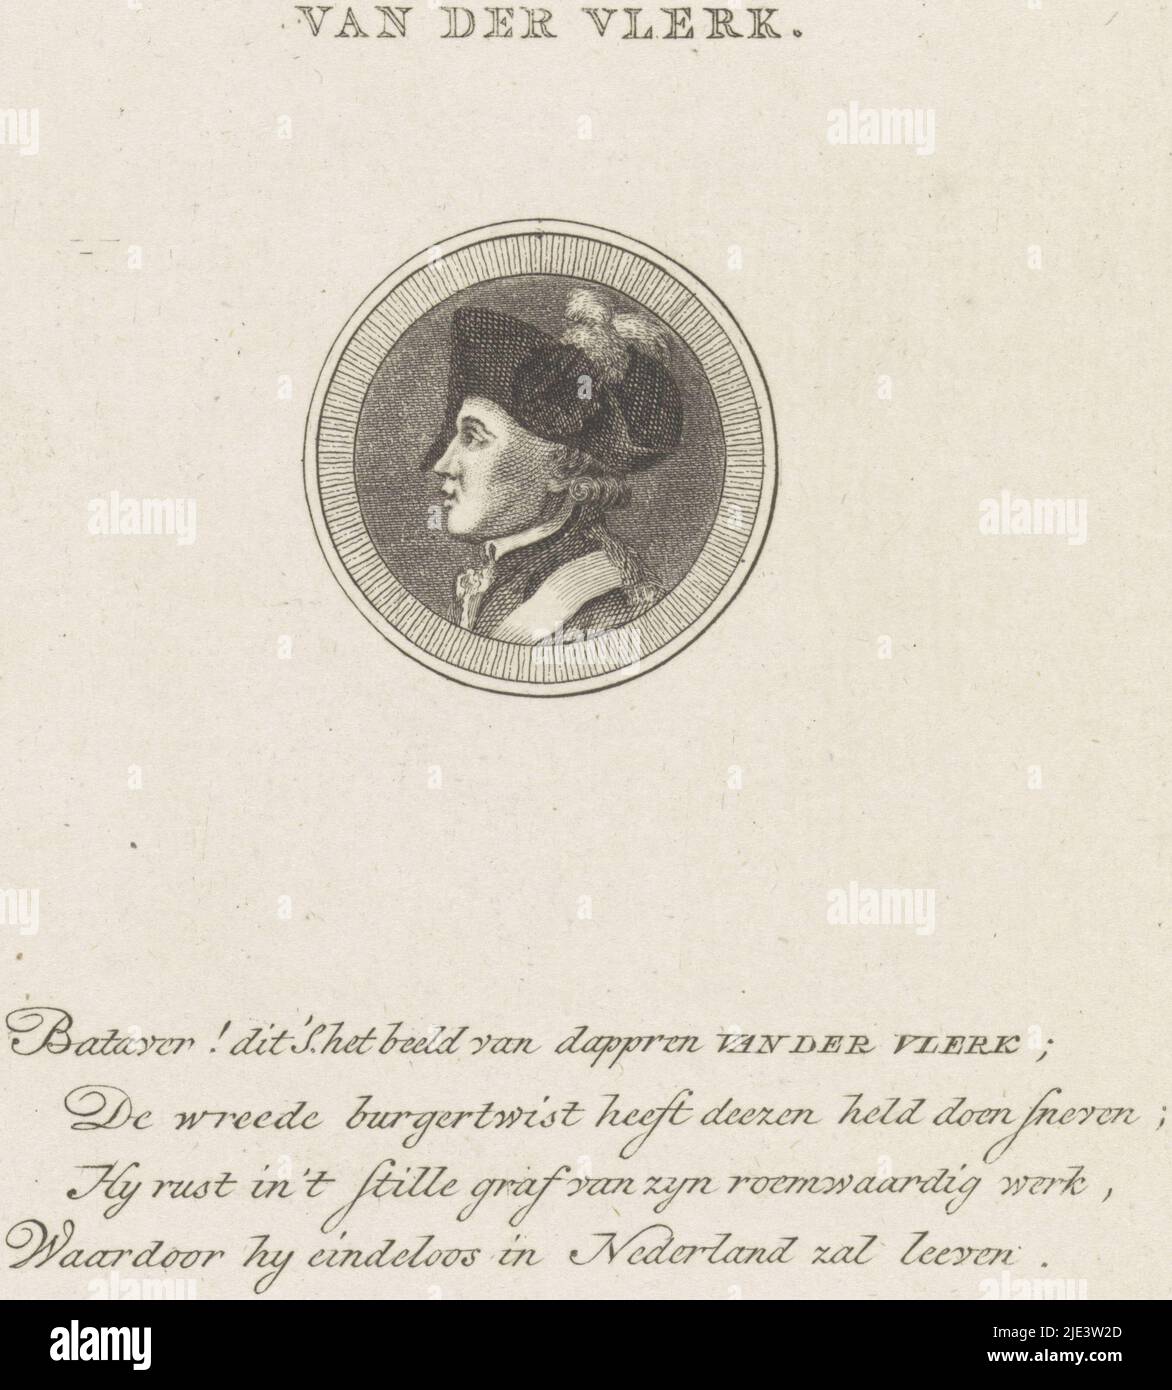 VAN DER VLERK.
Bataver! dit's het beeld van dappren VAN DER VLERK;
De wreede burgertwist heeft deezen held doen sneven;
Hy rust in't stille graf van zyn roemwaardig werk,
Waardoor hy eindeloos in Nederland zal leeven.
alamy
Image ID: 2JE3W2D
www.alamy.com